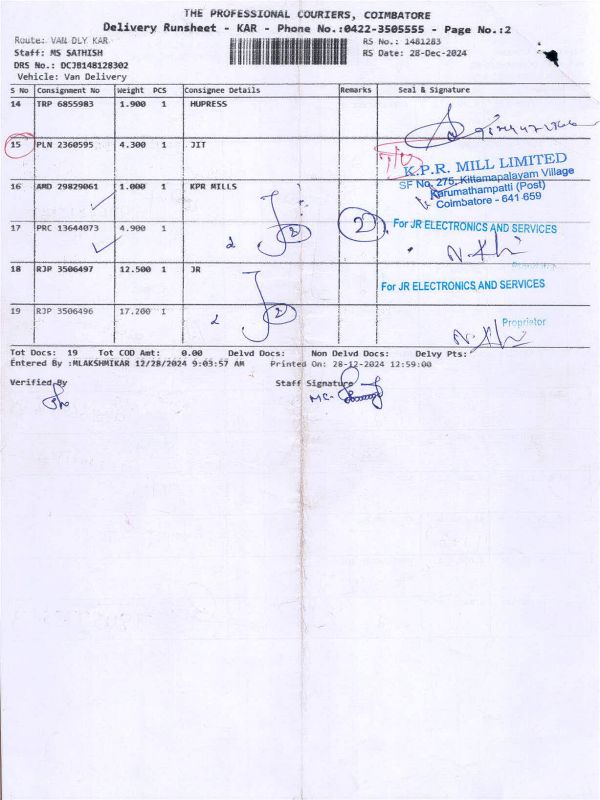 THE PROFESSIONAL COURIERS, COIMBATORE
Delivery Runsheet - KAR - Phone No.:0422-3505555 - Page No.:2
Route: VAN DLY KAR
RS No.: 1481283
Staff: MS SATHISH
RS Date: 28-Dec-2024
DRS No.: DCJB148128302
Vehicle: Van Delivery
S No Consignment No Weight PCS Consignee Details Remarks Seal & Signature
14 TRP 6855983 1.900 1 HUPRESS
15 PLN 2360595 4.300 1 JIT
K.P.R. MILL LIMITED
SF No. 275, Kittampalayam Village
Karumathampatti (Post)
Coimbatore - 641 659
16 AMD 29829061 1.000 1 KPR MILLS
17 PRC 13644073 4.900 1
2
2
For JR ELECTRONICS AND SERVICES
18 RJP 3506497 12.500 1 JR
For JR ELECTRONICS AND SERVICES
19 RJP 3506496 17.200 1
2
Proprietor
Tot Docs: 19 Tot COD Amt: 0.00 Delvd Docs: Non Delvd Docs: Delvy Pts:
Entered By :MLAKSHMIKAR 12/28/2024 9:03:57 AM Printed On: 28-12-2024 12:59:00
Verified By
Staff Signature